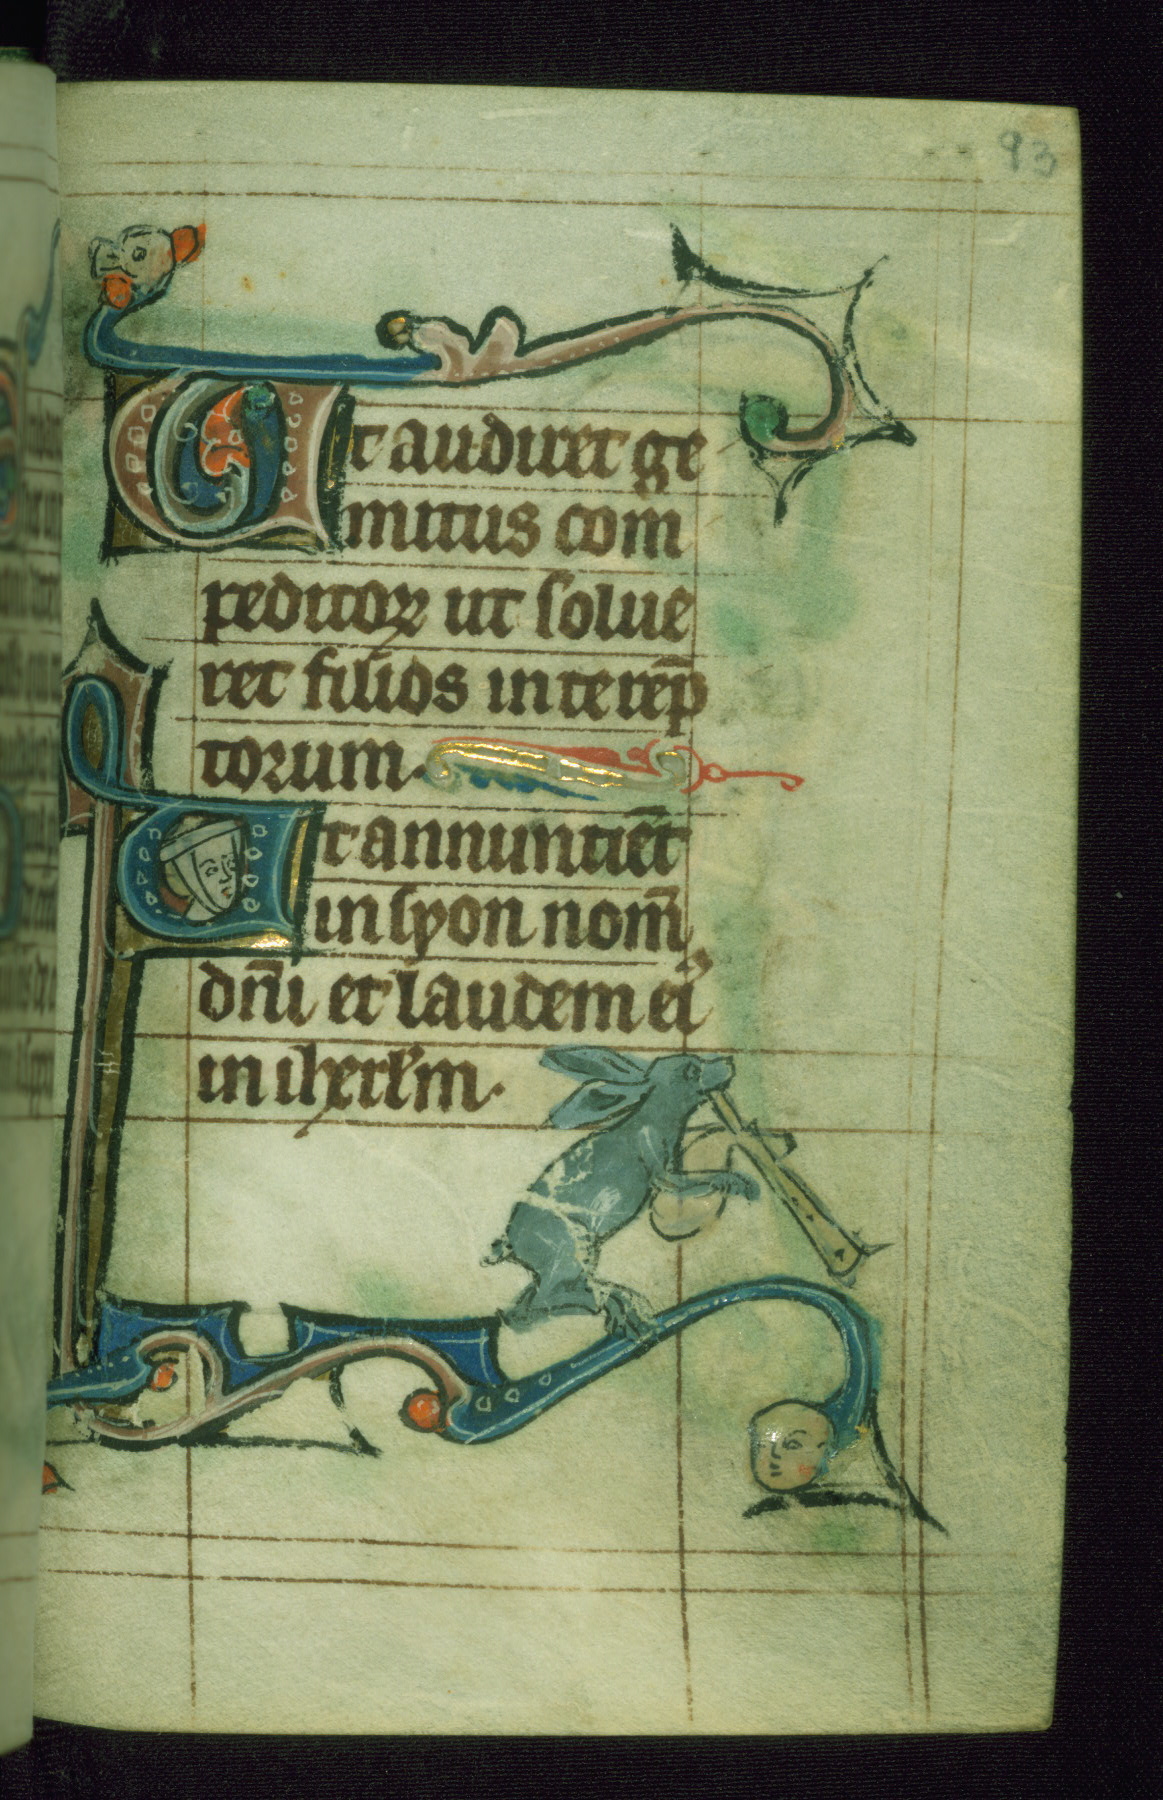 93
Ut audiret ge
mitus com
peditoꝝ ut solue
ret filios interēp
torum.
Ut annuntiēt
in syon nom̄
dn̄i et laudem ei᷒
in iherl̄m.